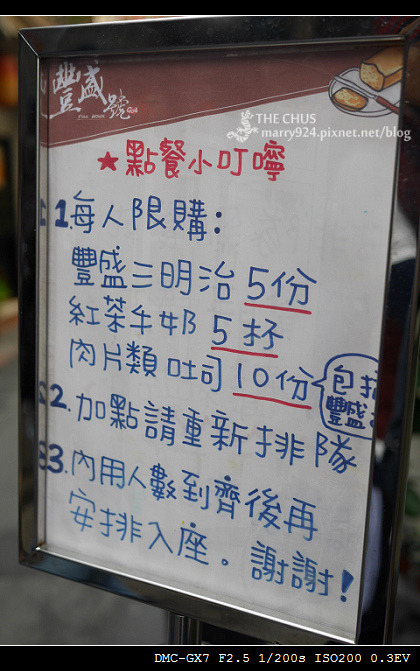 豐盛號
THE CHUS
marry924.pixnet.net/blog
★點餐小叮嚀
1.每人限購：
豐盛三明治 5份
紅茶牛奶 5杯
肉片類吐司 10份
包括
豐盛
2.加點請重新排隊
3.內用人數到齊後再
安排入座。謝謝！
DMC-GX7 F2.5 1/200s ISO200 0.3EV